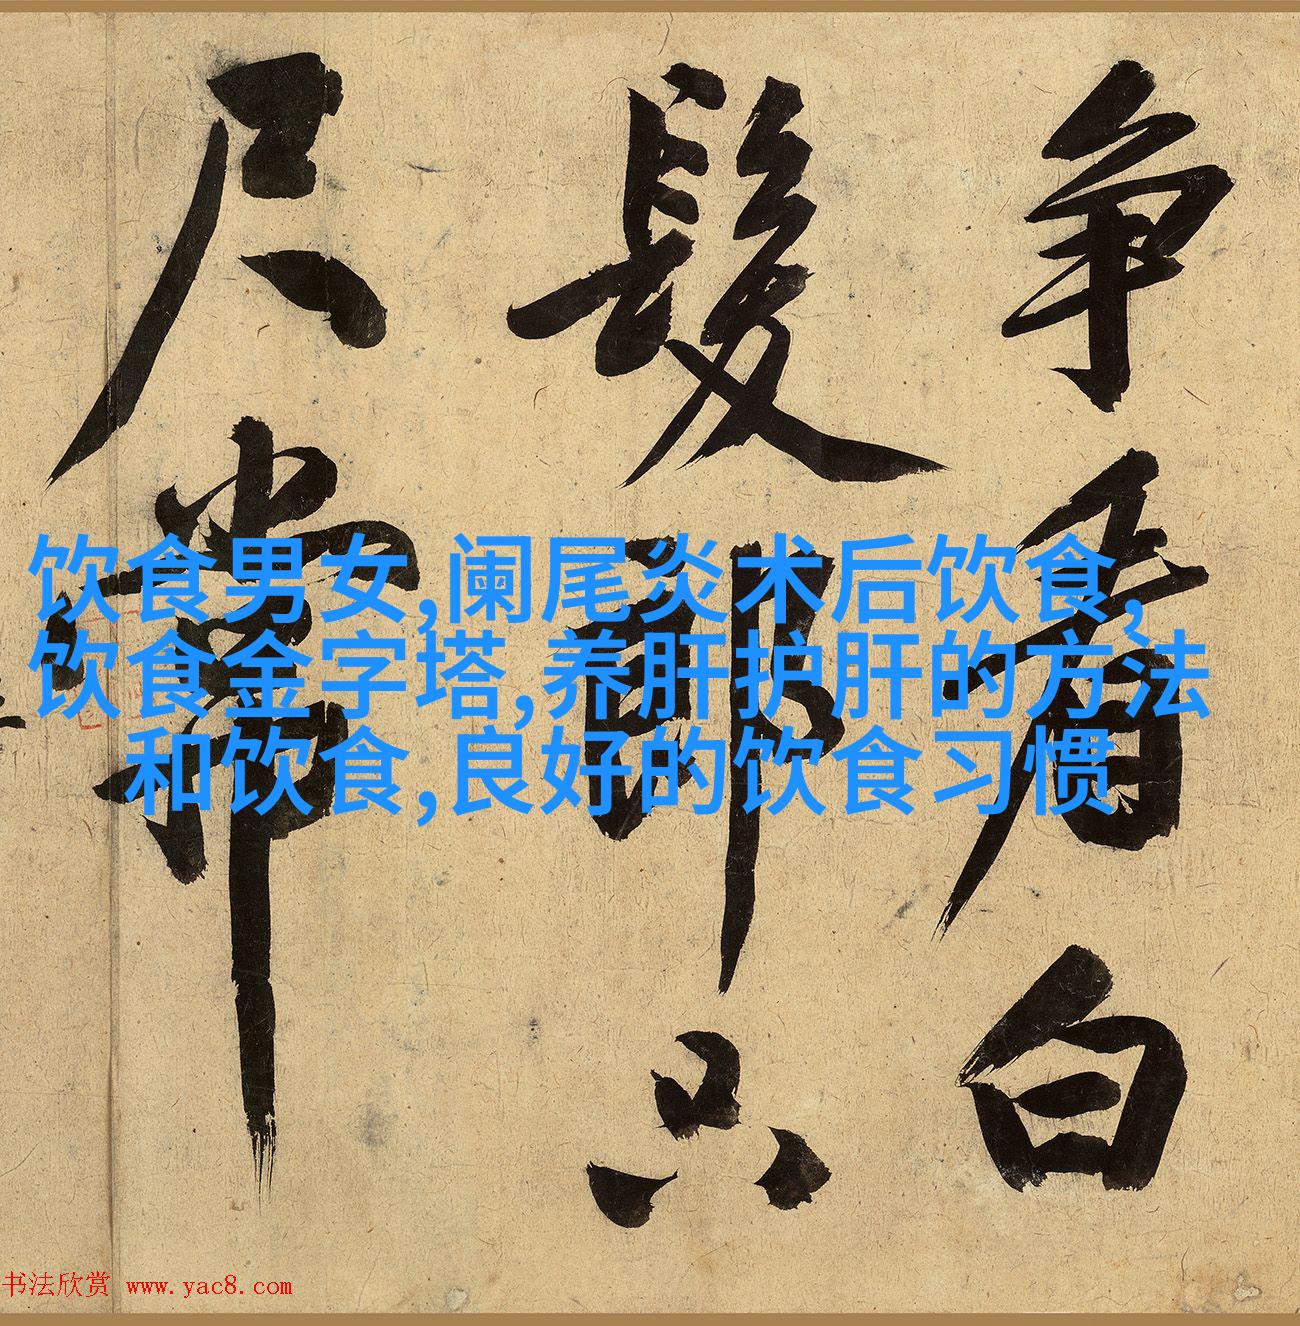 争看白
髮郎只
尺常
饮食男女,阑尾炎术后饮食,
饮食金字塔,养肝护肝的方法
和饮食,良好的饮食习惯
书法欣赏 www.yac8.com